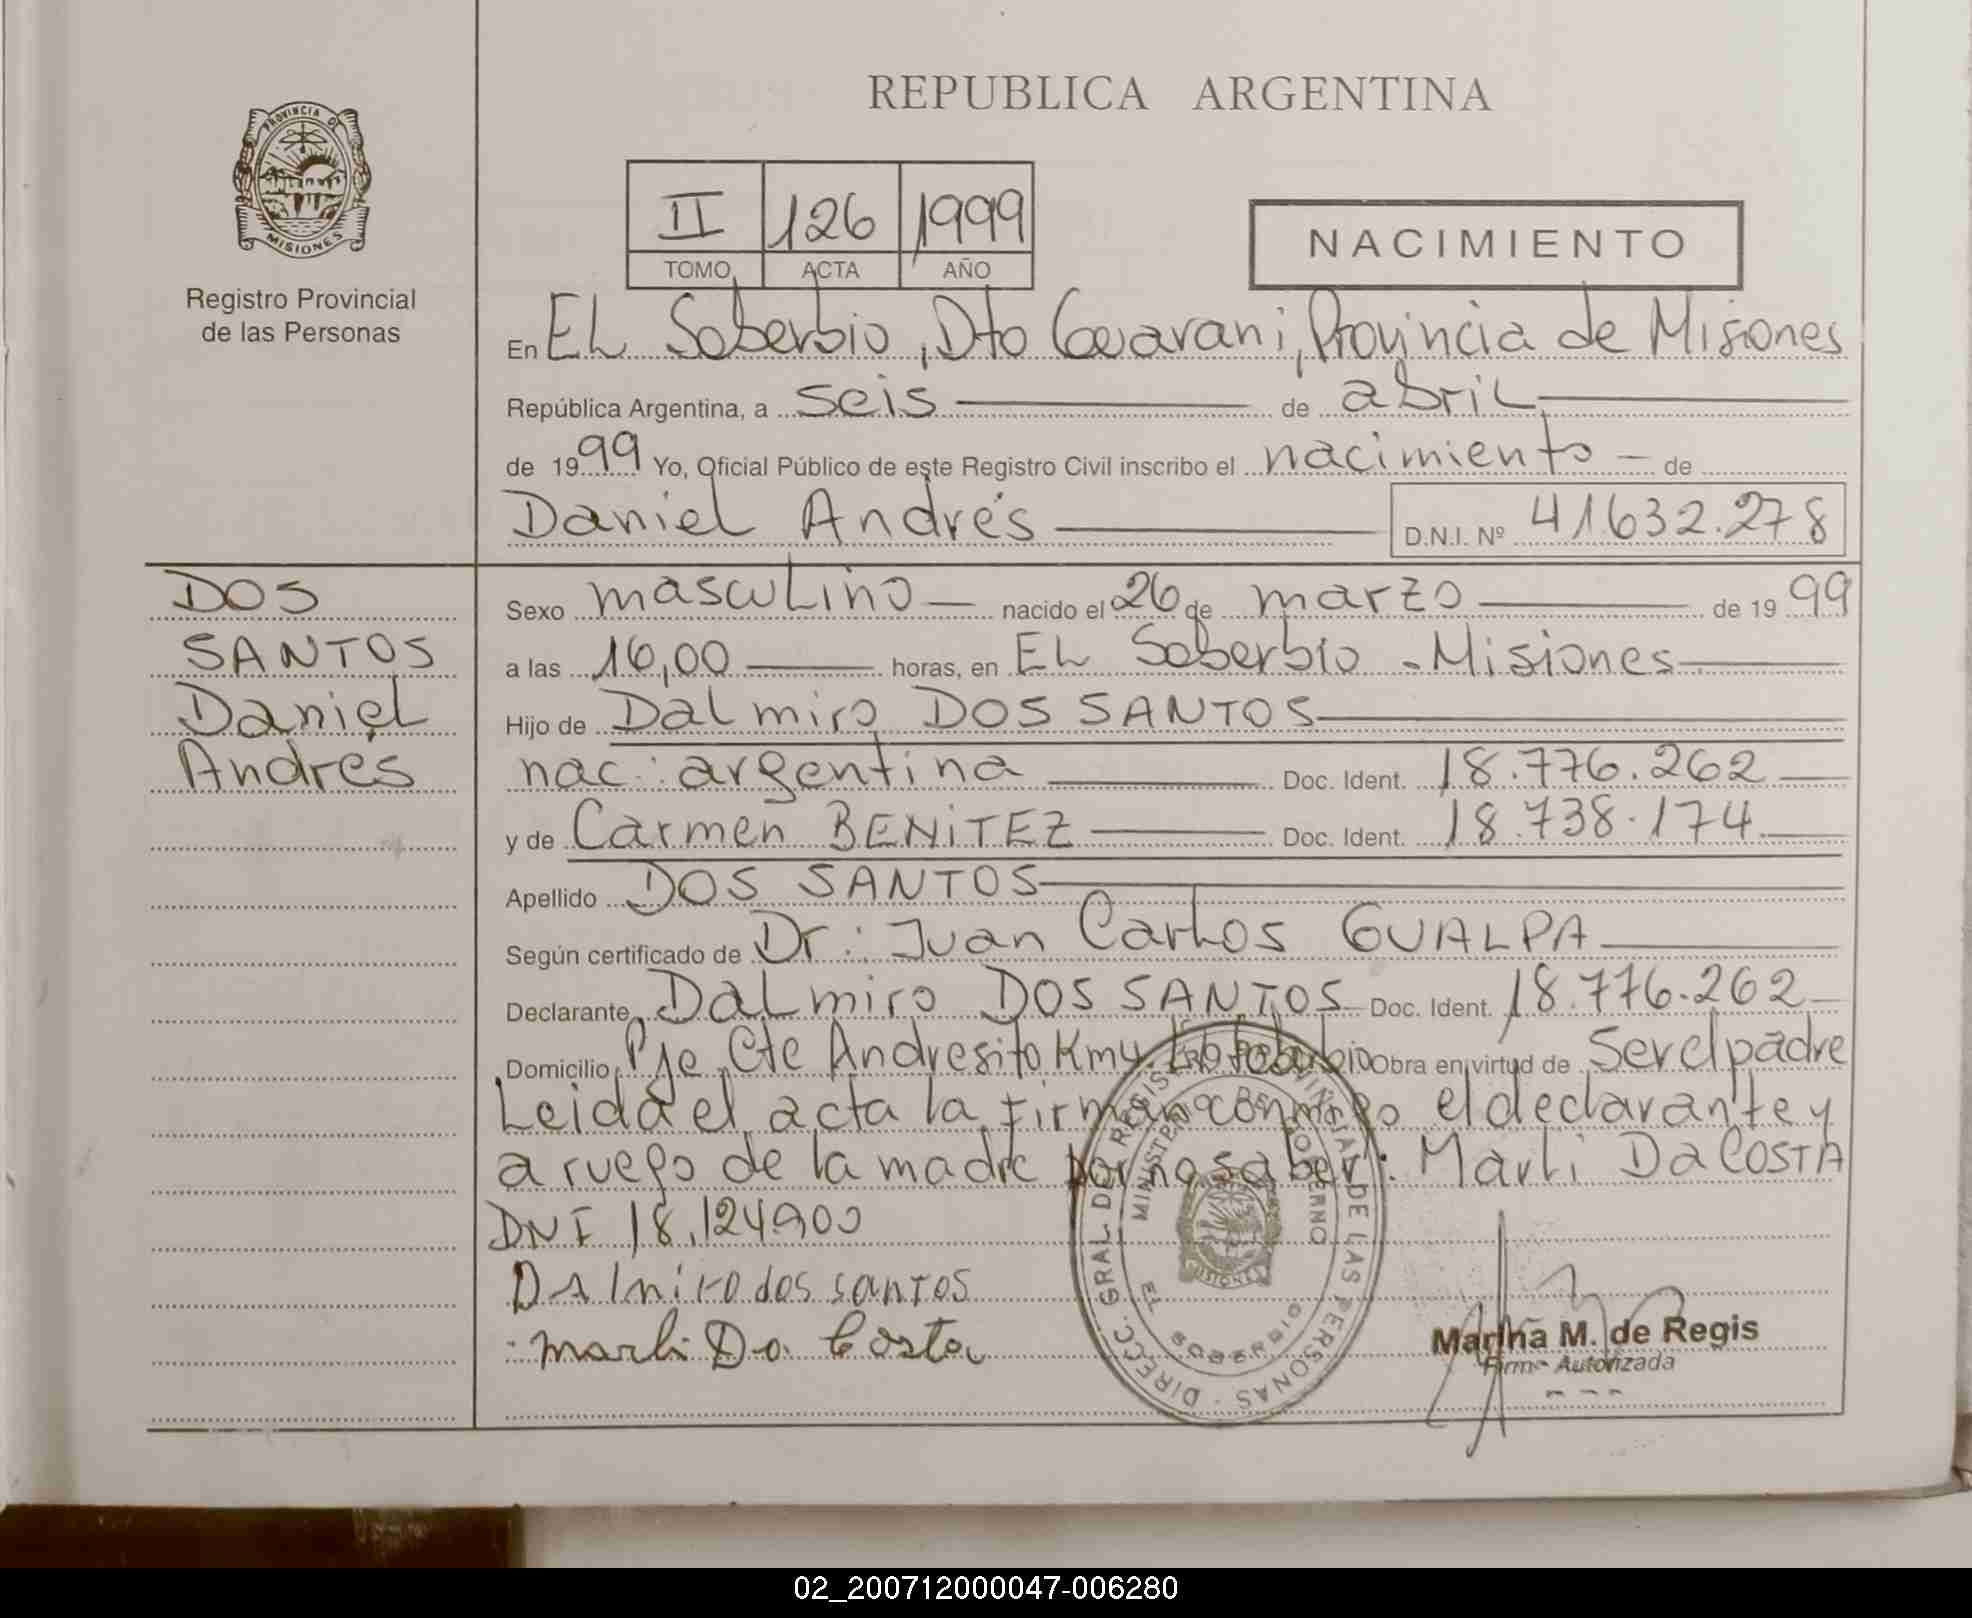 REPUBLICA ARGENTINA
PROVINCIA DE
MISIONES
Registro Provincial
de las Personas
II 126 1999
TOMO ACTA AÑO
NACIMIENTO
En EL Soberbio, Dto Guarani, Provincia de Misiones
República Argentina, a seis de abril
de 1999 Yo, Oficial Público de este Registro Civil inscribo el nacimiento - de
Daniel Andrés D.N.I. Nº 41.632.278
DOS
SANTOS
Daniel
Andrés
Sexo masculino nacido el 26 de marzo de 1999
a las 16,00 horas, en EL Soberbio - Misiones
Hijo de Dalmiro DOS SANTOS
nac: argentina Doc. Ident. 18.776.262
y de Carmen BENITEZ Doc. Ident. 18.738.174
Apellido DOS SANTOS
Según certificado de Dr: Juan Carlos GUALPA
Declarante Dalmiro DOS SANTOS Doc. Ident. 18.776.262
Domicilio Pje Cte Andresito Km4. El Soberbio Obra en virtud de Ser el padre
Leida el acta la firman conmigo el declarante y
a ruego de la madre por no saber: Marli Da COSTA
DNI 18.124.900
Dalmiro dos santos
marli Da Costa
DIREC. GRAL DEL REGISTRO PROVINCIAL DE LAS PERSONAS
MINISTERIO DE GOBIERNO
EL SOBERBIO
MISIONES
Marina M. de Regis
Firma Autorizada
02_200712000047-006280